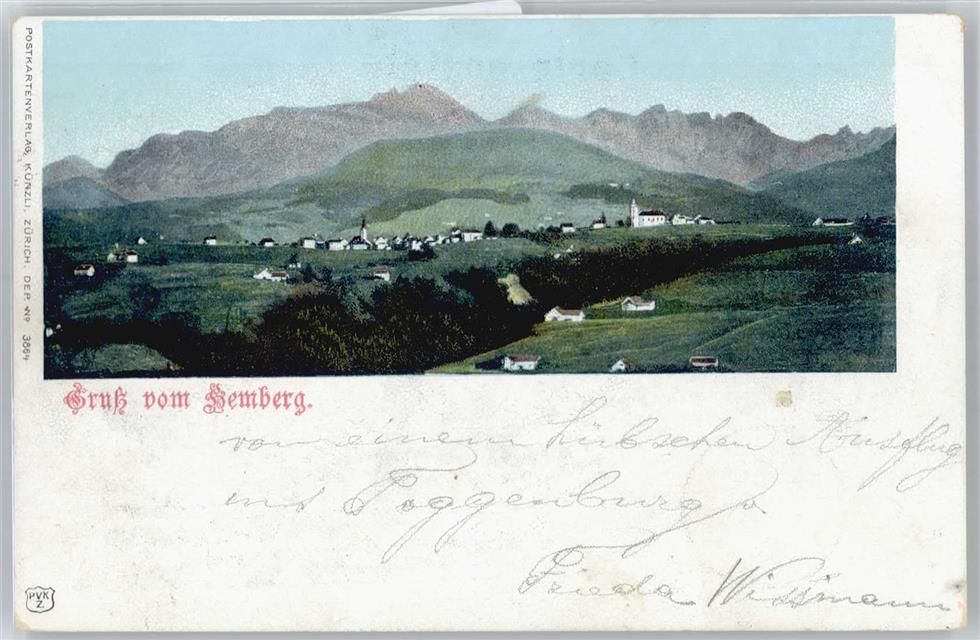 POSTKARTENVERLAG KÜNZLI, ZÜRICH. DEP. Nº 3864
Gruß vom Hemberg.
von einem hübschen Ausflug
ins Toggenburg
Frieda Wissmann
PVK
Z